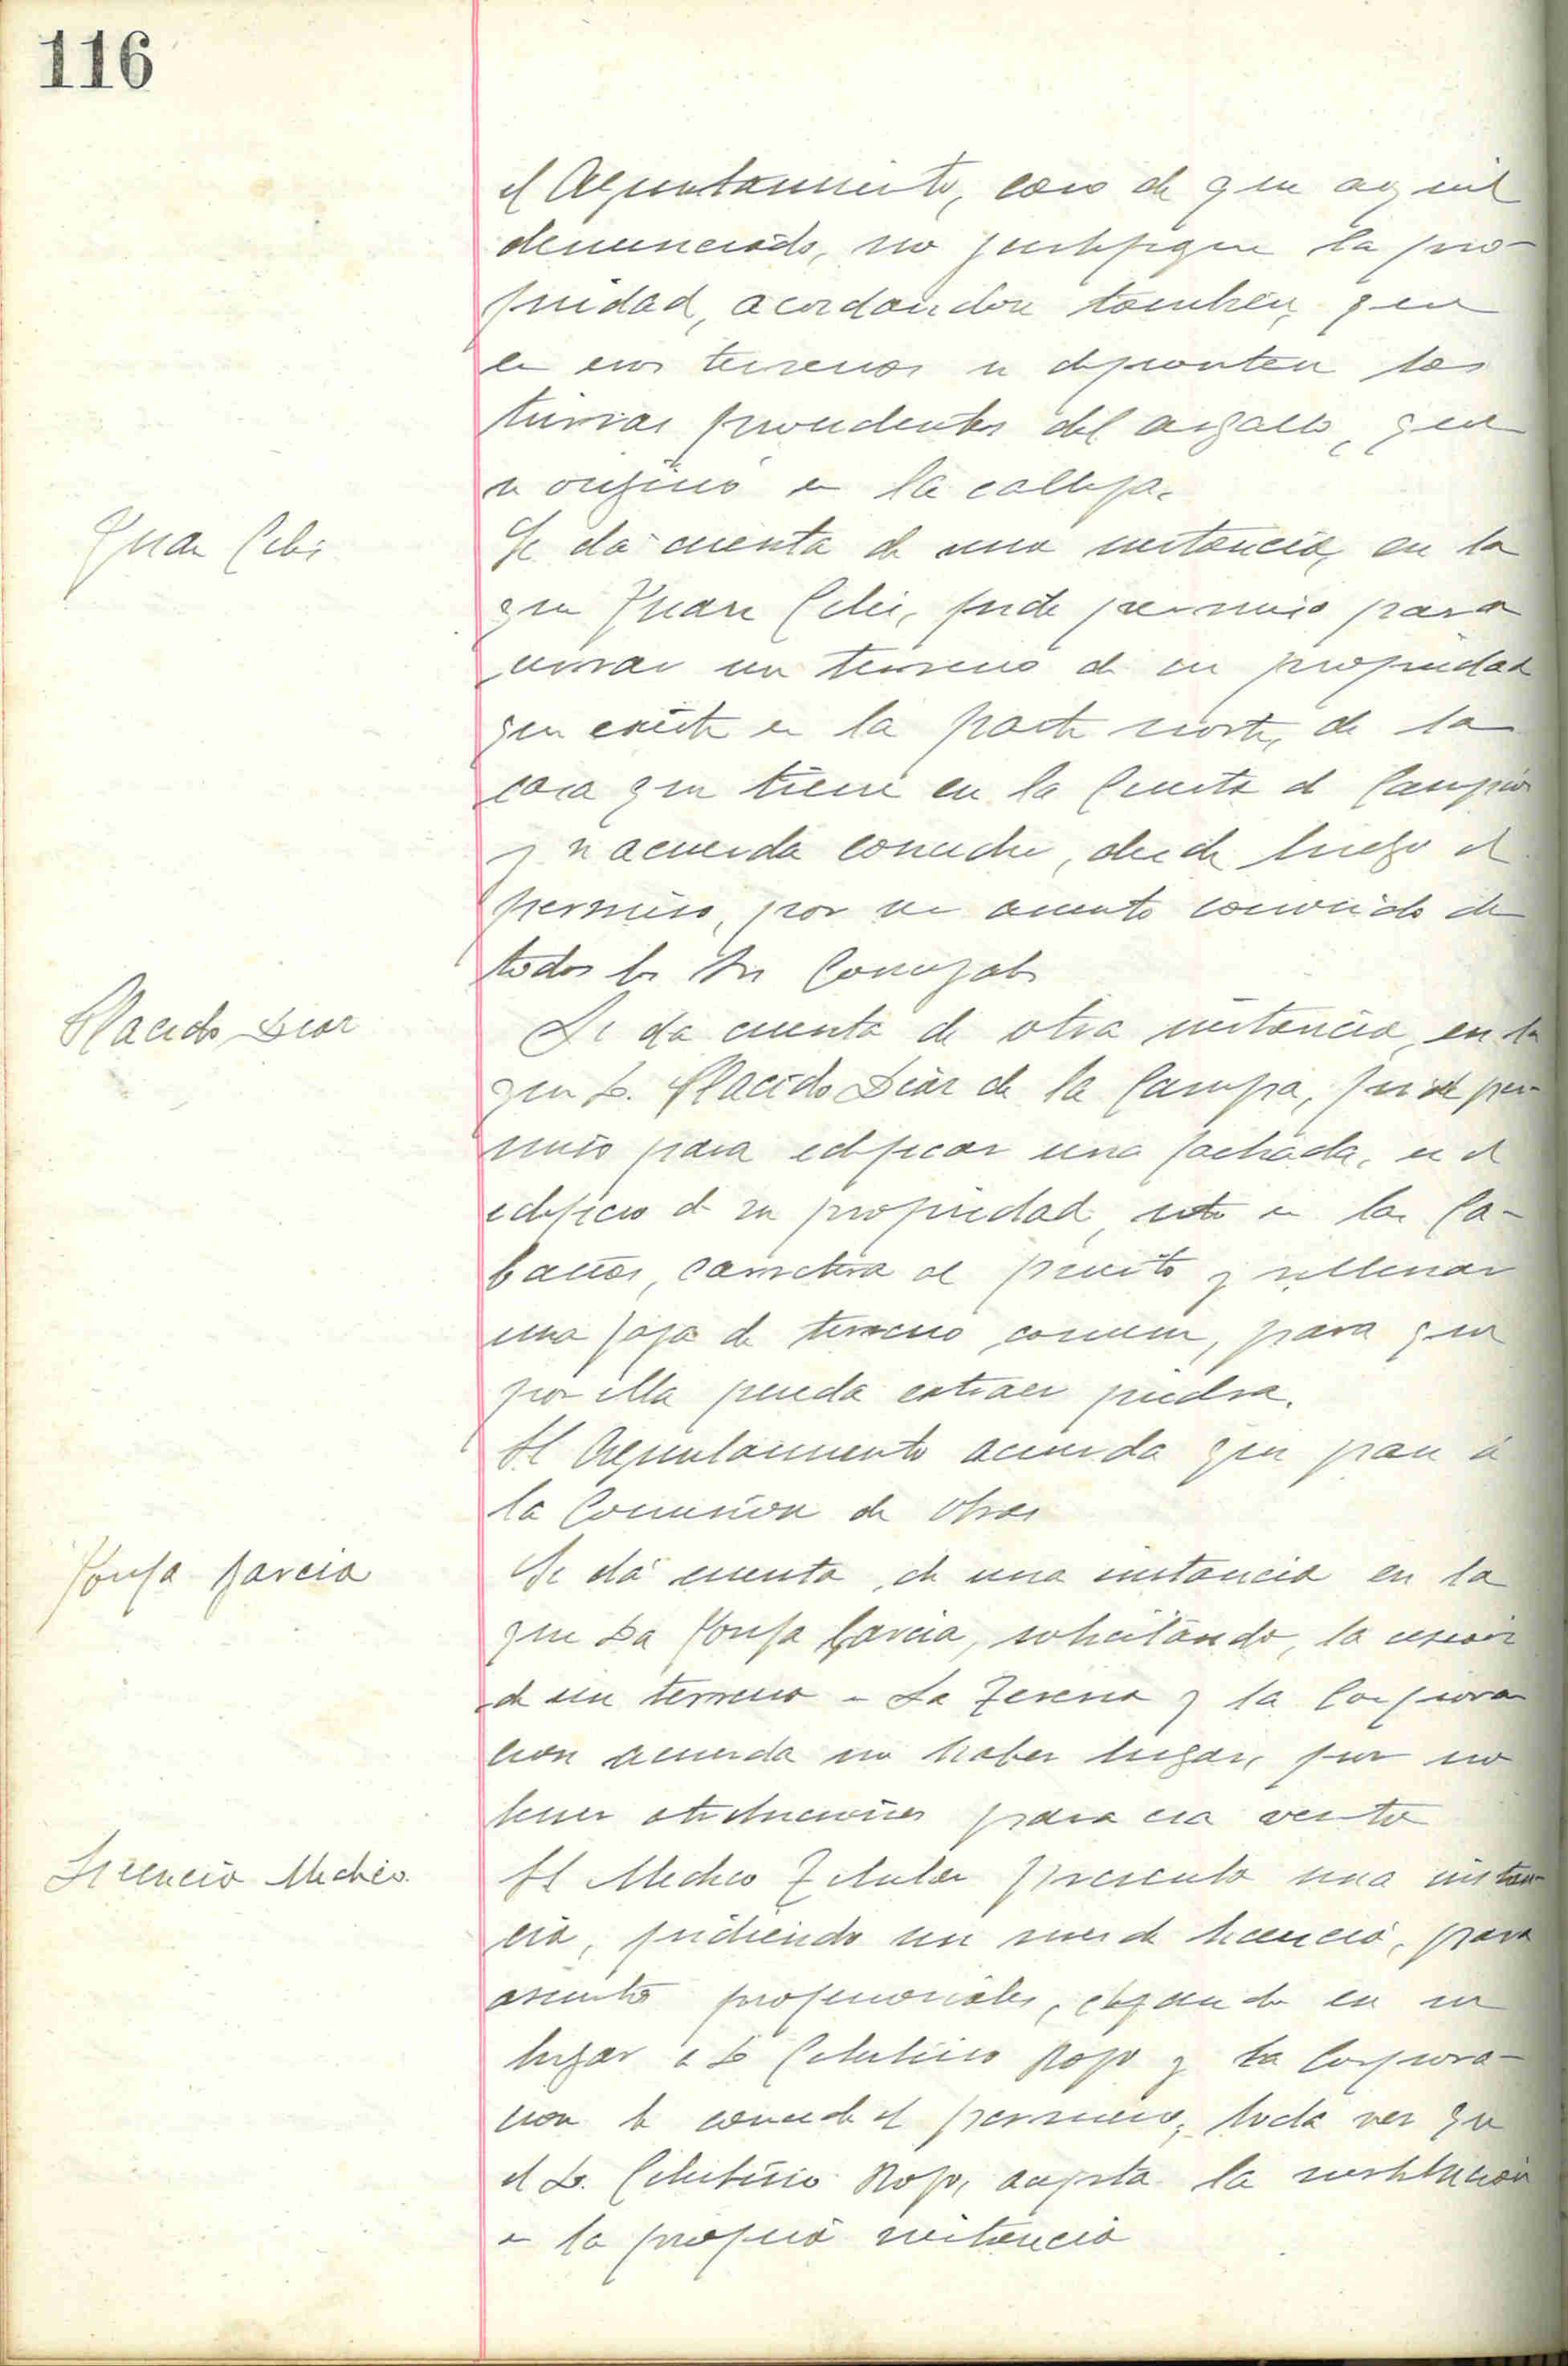 116
el Ayuntamiento, caso de que aquel
denunciado, no justifique la pro-
piedad, acordandose tambien, que
en esos terrenos se depositen las
tierras procedentes del argallo, que
se originó en la calleja.
Juan Celis
Se da cuenta de una instancia, en la
que Juan Celis, pide permiso para
cerrar un terreno de su propiedad
que existe en la parte norte, de la
casa que tiene en la Cuesta de
y se acuerda conceder, desde luego el
permiso, por ser asunto conocido de
todos los Srs Concejales
Placido Diaz
Se da cuenta de otra instancia, en la
que D. Placido Diaz de la Campa, pide per-
miso para edificar una fachada, en el
edificio de su propiedad, sito en las Ca-
bañas, carretera al puerto y rellenar
una faja de terreno comun, para que
por ella pueda extraer piedra.
El Ayuntamiento acuerda que pase á
la Comision de Obras
Garcia
Se dá cuenta, de una instancia en la
que Da Garcia, solicitando, la cesion
de un terreno en La y la Corpora
cion acuerda no haber lugar, por no
tener atribuciones para esa venta
Licencia Medico.
El Medico Titular presenta una instan-
cia, pidiendo un mes de licencia, para
asuntos profesionales, dejando en su
lugar á D Celestino Rojo y la Corpora-
cion le concede el permiso, toda vez que
el D. Celestino Rojo, acepta la sustitucion
en la propia instancia